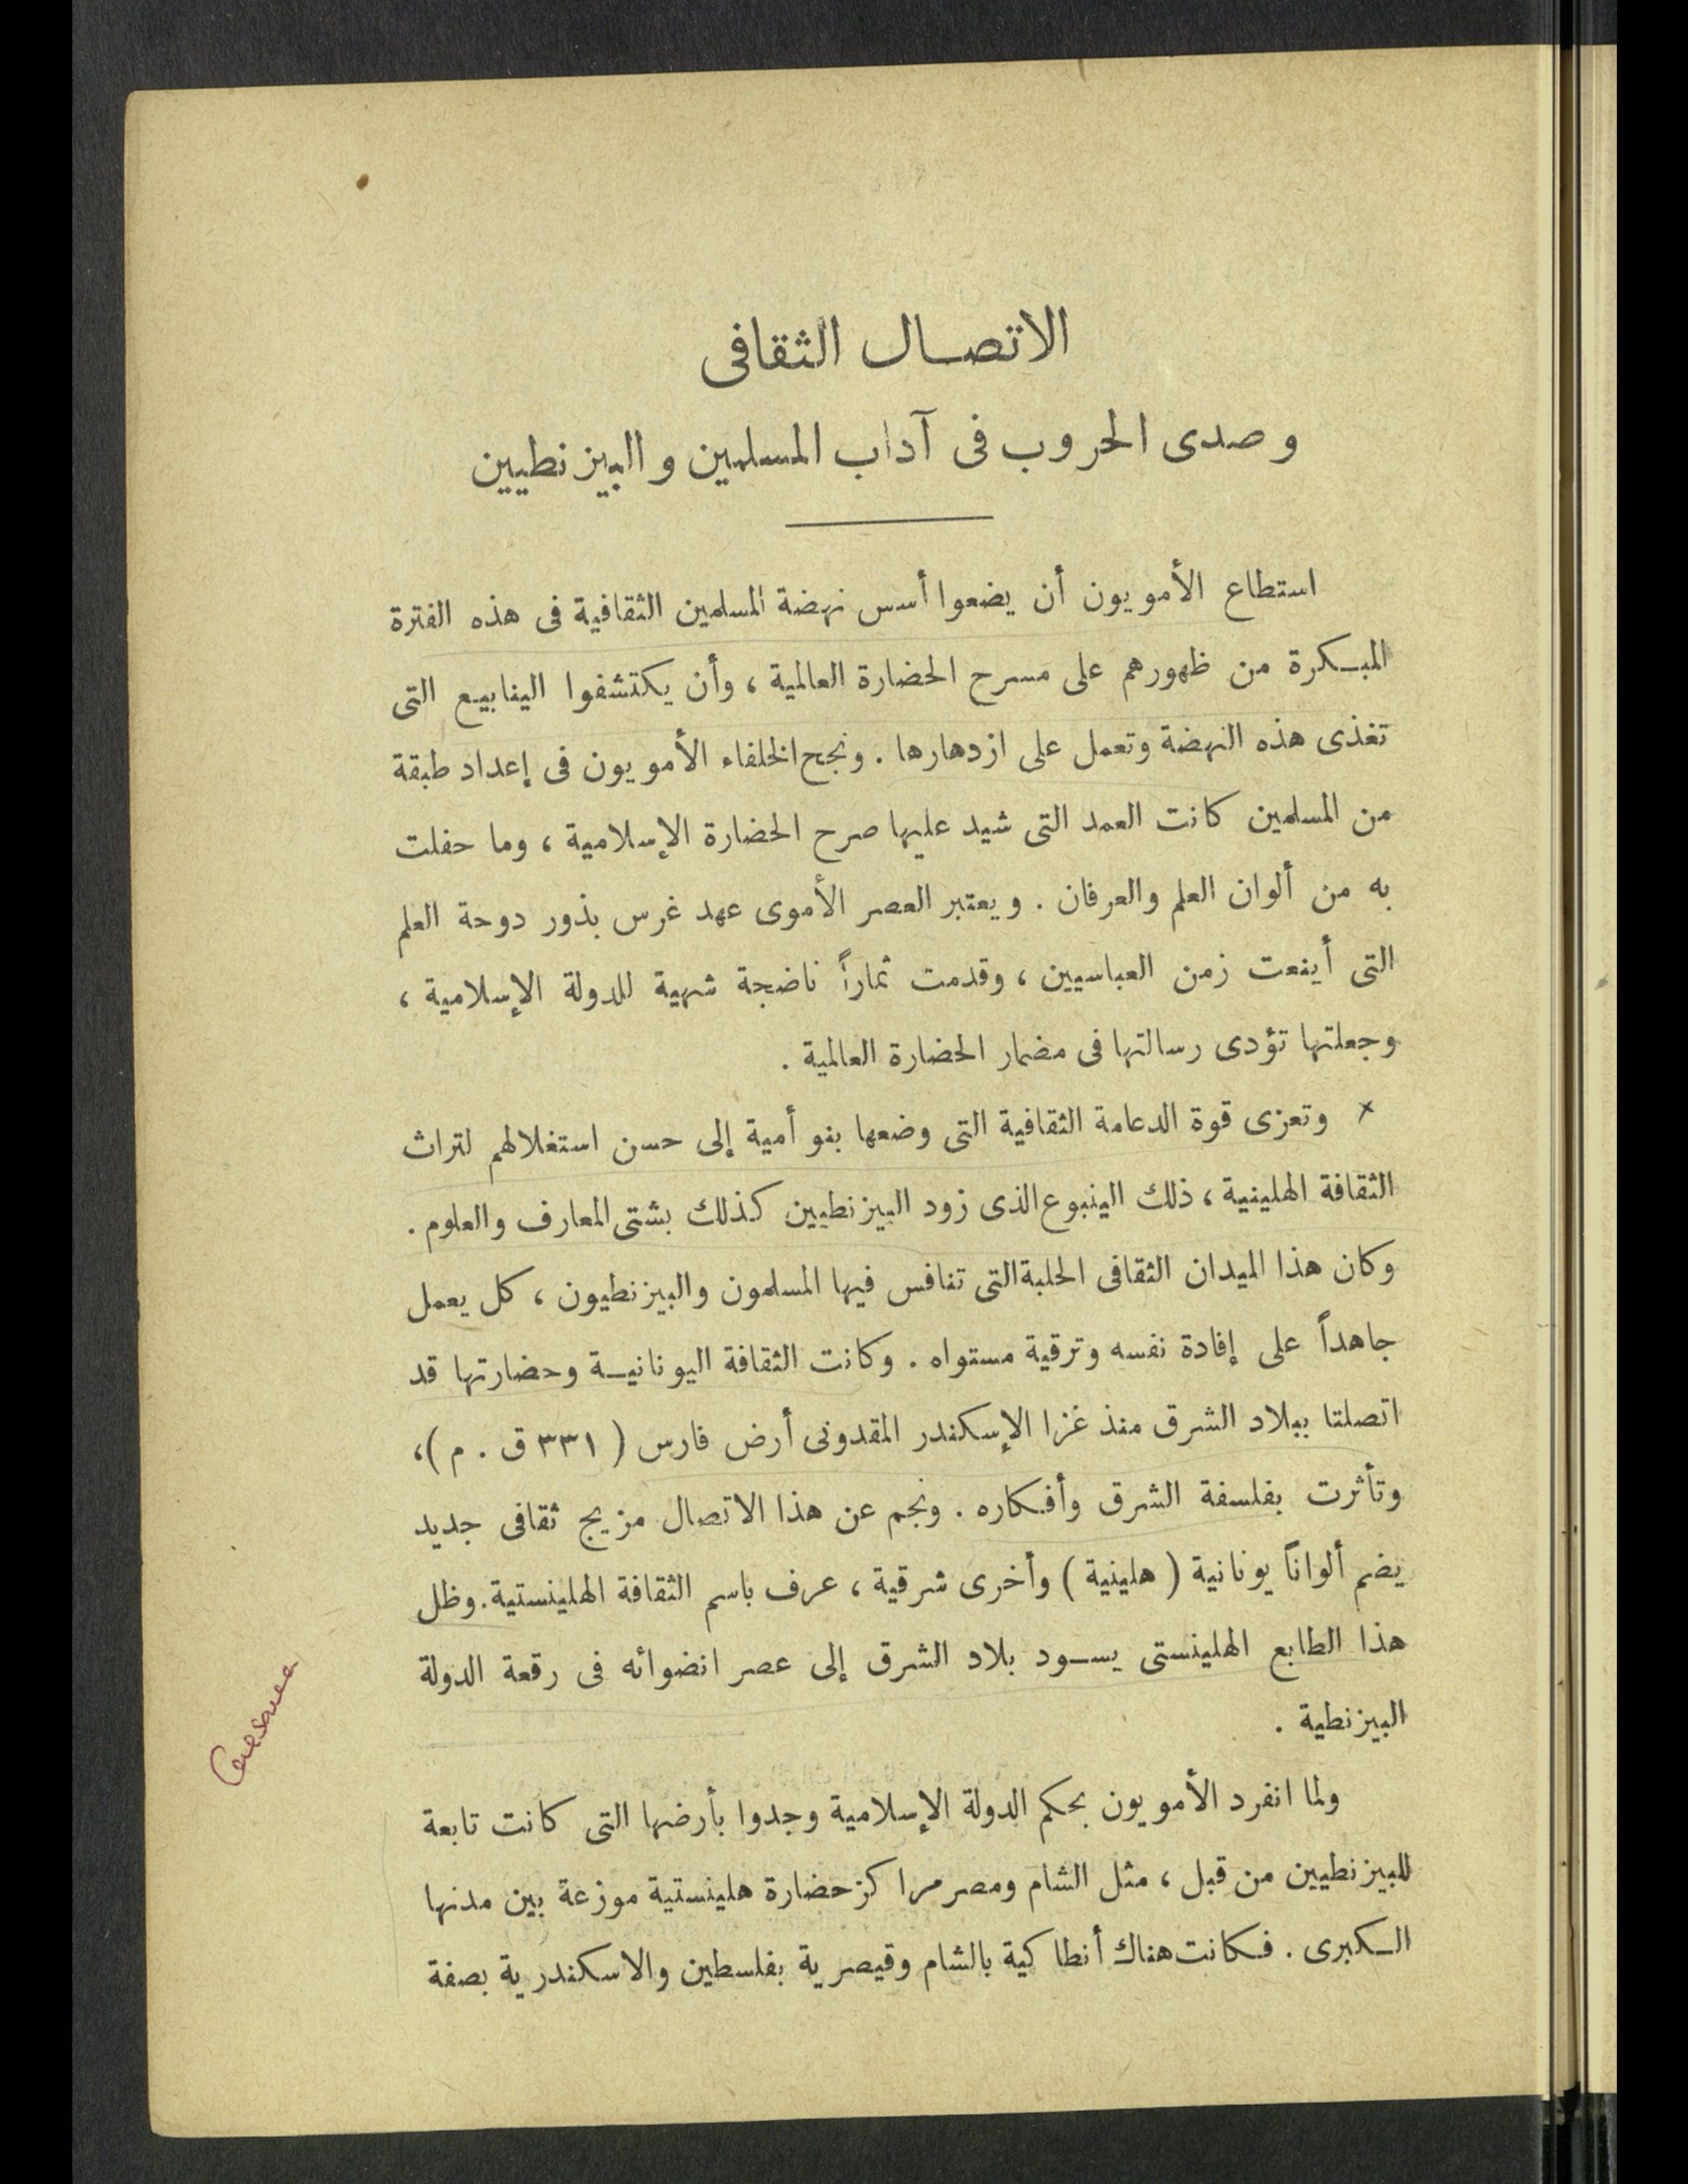 الاتصـال الثقافى
وصدى الحروب فى آداب المسلمين والبيزنطيين
استطاع الأمويون أن يضعوا أسس نهضة المسلمين الثقافية فى هذه الفترة
المبـكرة من ظهورهم على مسرح الحضارة العالمية ، وأن يكتشفوا الينابيع التى
تغذى هذه النهضة وتعمل على ازدهارها . ونجح الخلفاء الأمويون فى إعداد طبقة
من المسلمين كانت العمد التى شيد عليها صرح الحضارة الإسلامية ، وما حفلت
به من ألوان العلم والعرفان . ويعتبر العصر الأموى عهد غرس بذور دوحة العلم
التى أينعت زمن العباسيين ، وقدمت ثماراً ناضجة شهية للدولة الإسلامية ،
وجعلتها تؤدى رسالتها فى مضمار الحضارة العالمية .
× وتعزى قوة الدعامة الثقافية التى وضعها بنو أمية إلى حسن استغلالهم لتراث
الثقافة الهلينية ، ذلك الينبوع الذى زود البيزنطيين كذلك بشتى المعارف والعلوم .
وكان هذا الميدان الثقافى الحلبة التى تنافس فيها المسلمون والبيزنطيون ، كل يعمل
جاهداً على إفادة نفسه وترقية مستواه . وكانت الثقافة اليونانيـة وحضارتها قد
اتصلتا ببلاد الشرق منذ غزا الإسكندر المقدونى أرض فارس ( ٣٣١ ق . م ) ،
وتأثرت بفلسفة الشرق وأفـكاره . ونجم عن هذا الاتصال مزيج ثقافى جديد
يضم ألواناً يونانية ( هلينية ) وأخرى شرقية ، عرف باسم الثقافة الهلينستية . وظل
هذا الطابع الهلينستى يسـود بلاد الشرق إلى عصر انضوائه فى رقعة الدولة
البيزنطية .
ولما انفرد الأمويون بحكم الدولة الإسلامية وجدوا بأرضها التى كانت تابعة
للبيزنطيين من قبل ، مثل الشام ومصر مراكز حضارة هلينستية موزعة بين مدنها
الـكبرى . فـكانت هناك أنطاكية بالشام وقيصرية بفلسطين والاسكندرية بصفة